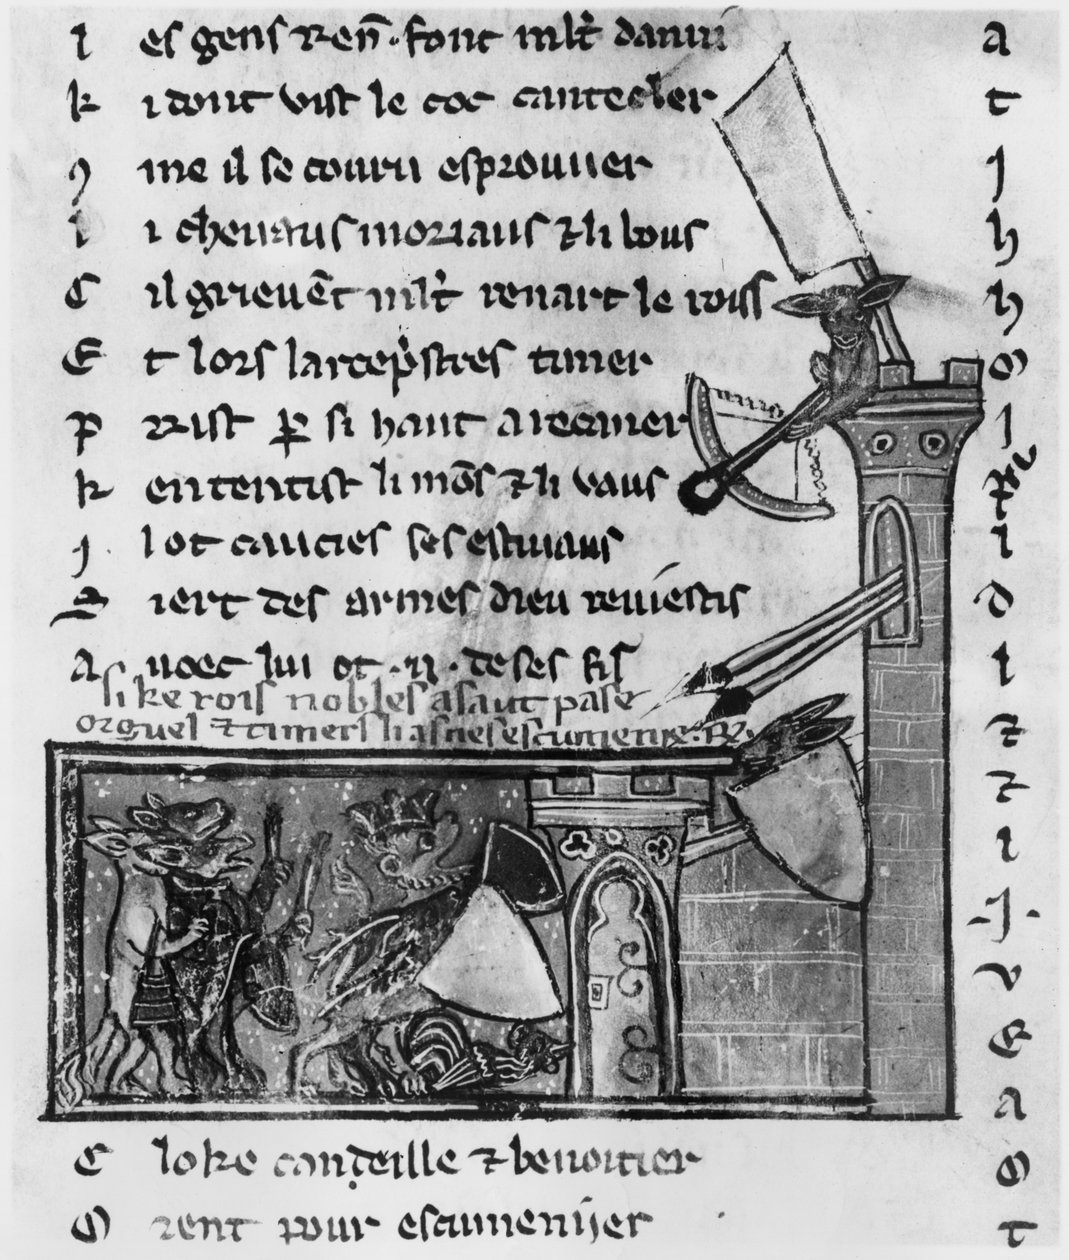 l es gens ren̄. font ml't dam
k i dont vist le coc cantecler
me il se couru esprouuer
l i cheuaus moriaus ⁊ li bous
C il grieuēt ml't renart le rous
E t lors larcep'stres timer
P rist ꝑ si haut a recaner
k en tentist li mōs ⁊ li vaus
j lot caucies ses estiuaus
S iert des armes dieu reuiestis
A uoec lui ot .ij. de ses fis
si ke rois nobles asaut pase
orguel ⁊ timers li asnes escumenie
E l o ke candeille ⁊ benoitier
O rent pour escumenijer
a
t
j
h
h
o
j
p
i
d
i
z
z
i
.j.
v
e
a
o
t